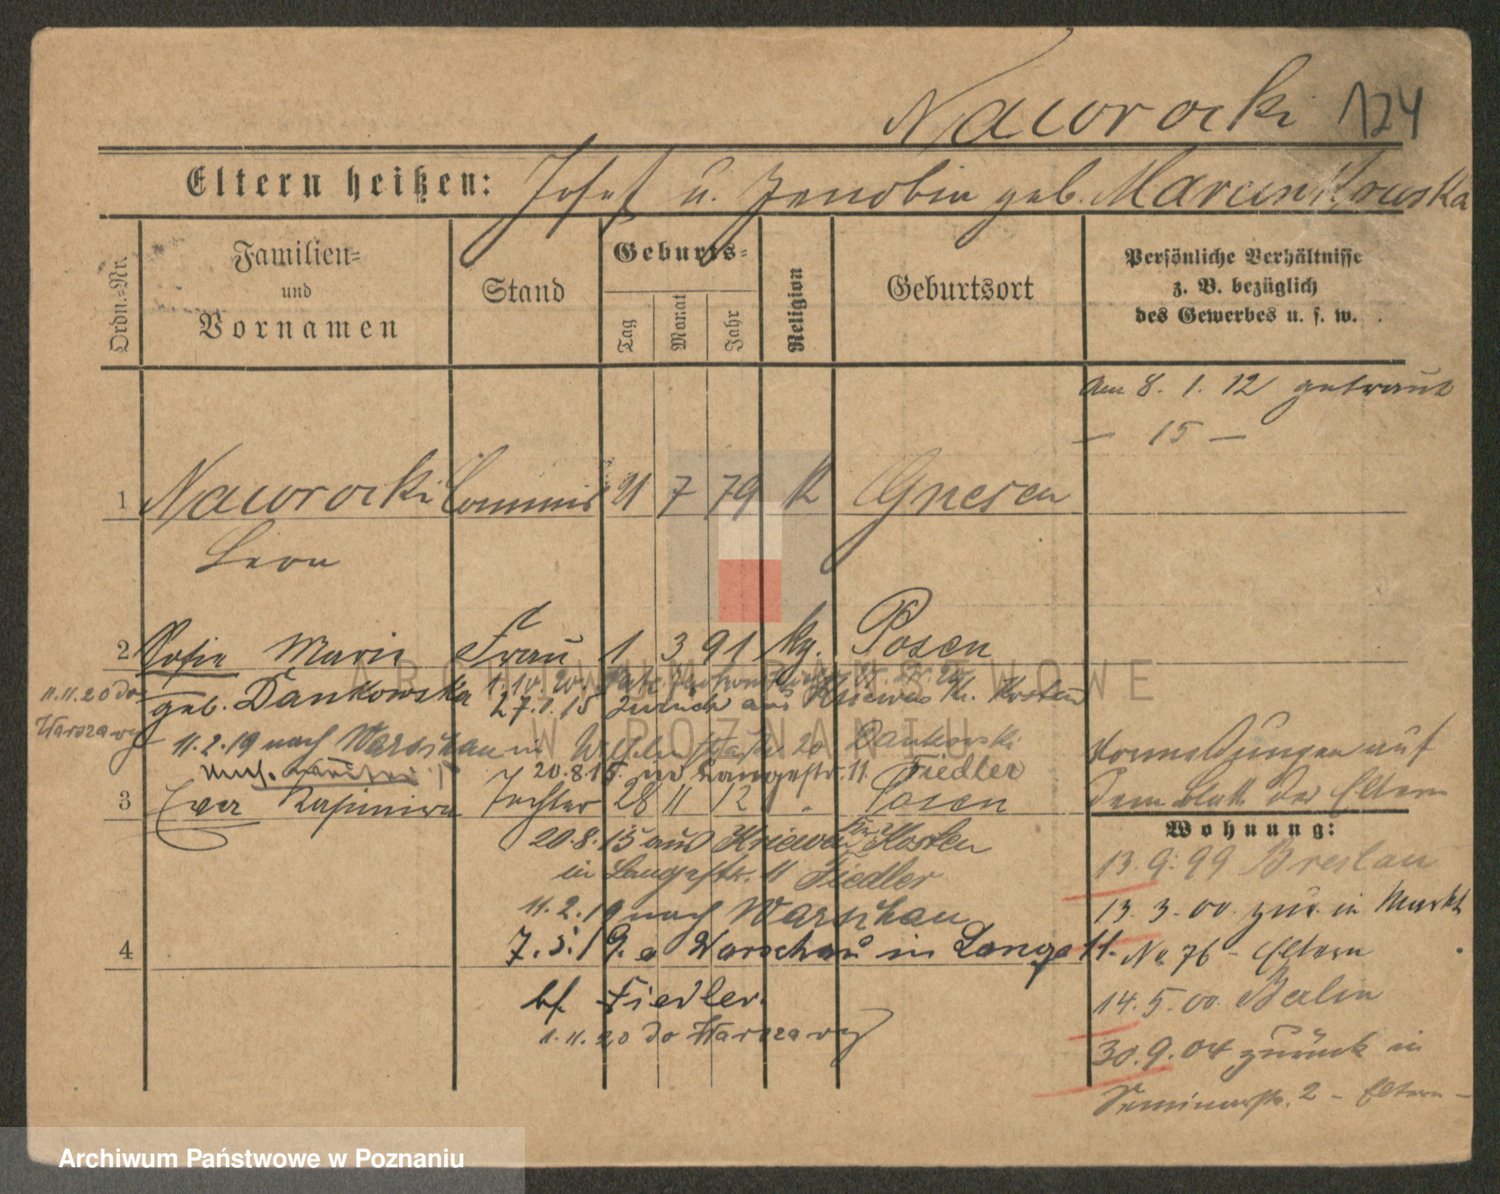 Nawrocki 124
Eltern heißen: Josef u. Zenobia geb. Marcinkowska
Ordn.=Nr.
Familien=
und
Vornamen
Stand
Geburts=
Tag
Monat
Jahr
Religion
Geburtsort
Persönliche Verhältnisse
z. B. bezüglich
des Gewerbes u. s. w.
am 8. 1. 12 getraut
— 15 —
1 Nawrocki Commis 21 7 79 K Gnesen
Leon
2 Sofie Marie Frau 1 3 91 kg. Posen
geb. Dankowska
11.11.20 do
Warszawy
1.10.20.
27.7.15 zurück aus Kriewen Kr. Kosten
11.2.19 nach Warschau in 20 Dankowski
20.8.15. Langestr. 11. Fiedler
3 Kasimira Tochter 28 11 12 " Posen
20.8.15 aus Kriewen Kr. Kosten
in Langestr. 11 Fiedler
11.2.19 nach Warschau
7.5.19. a Warschau in Lange 11.
4
bf Fiedler.
1.11.20 do Warszawy
Vormeldungen auf
dem Blatt der Eltern
Wohnung:
13. 9. 99 Breslau
13. 3. 00. zur. in Markt
No 76 - Eltern
14. 5. 00. Berlin
30. 9. 04 zurück in
Seminarstr. 2 - Eltern -
ARCHIWUM PAŃSTWOWE
W POZNANIU
Archiwum Państwowe w Poznaniu